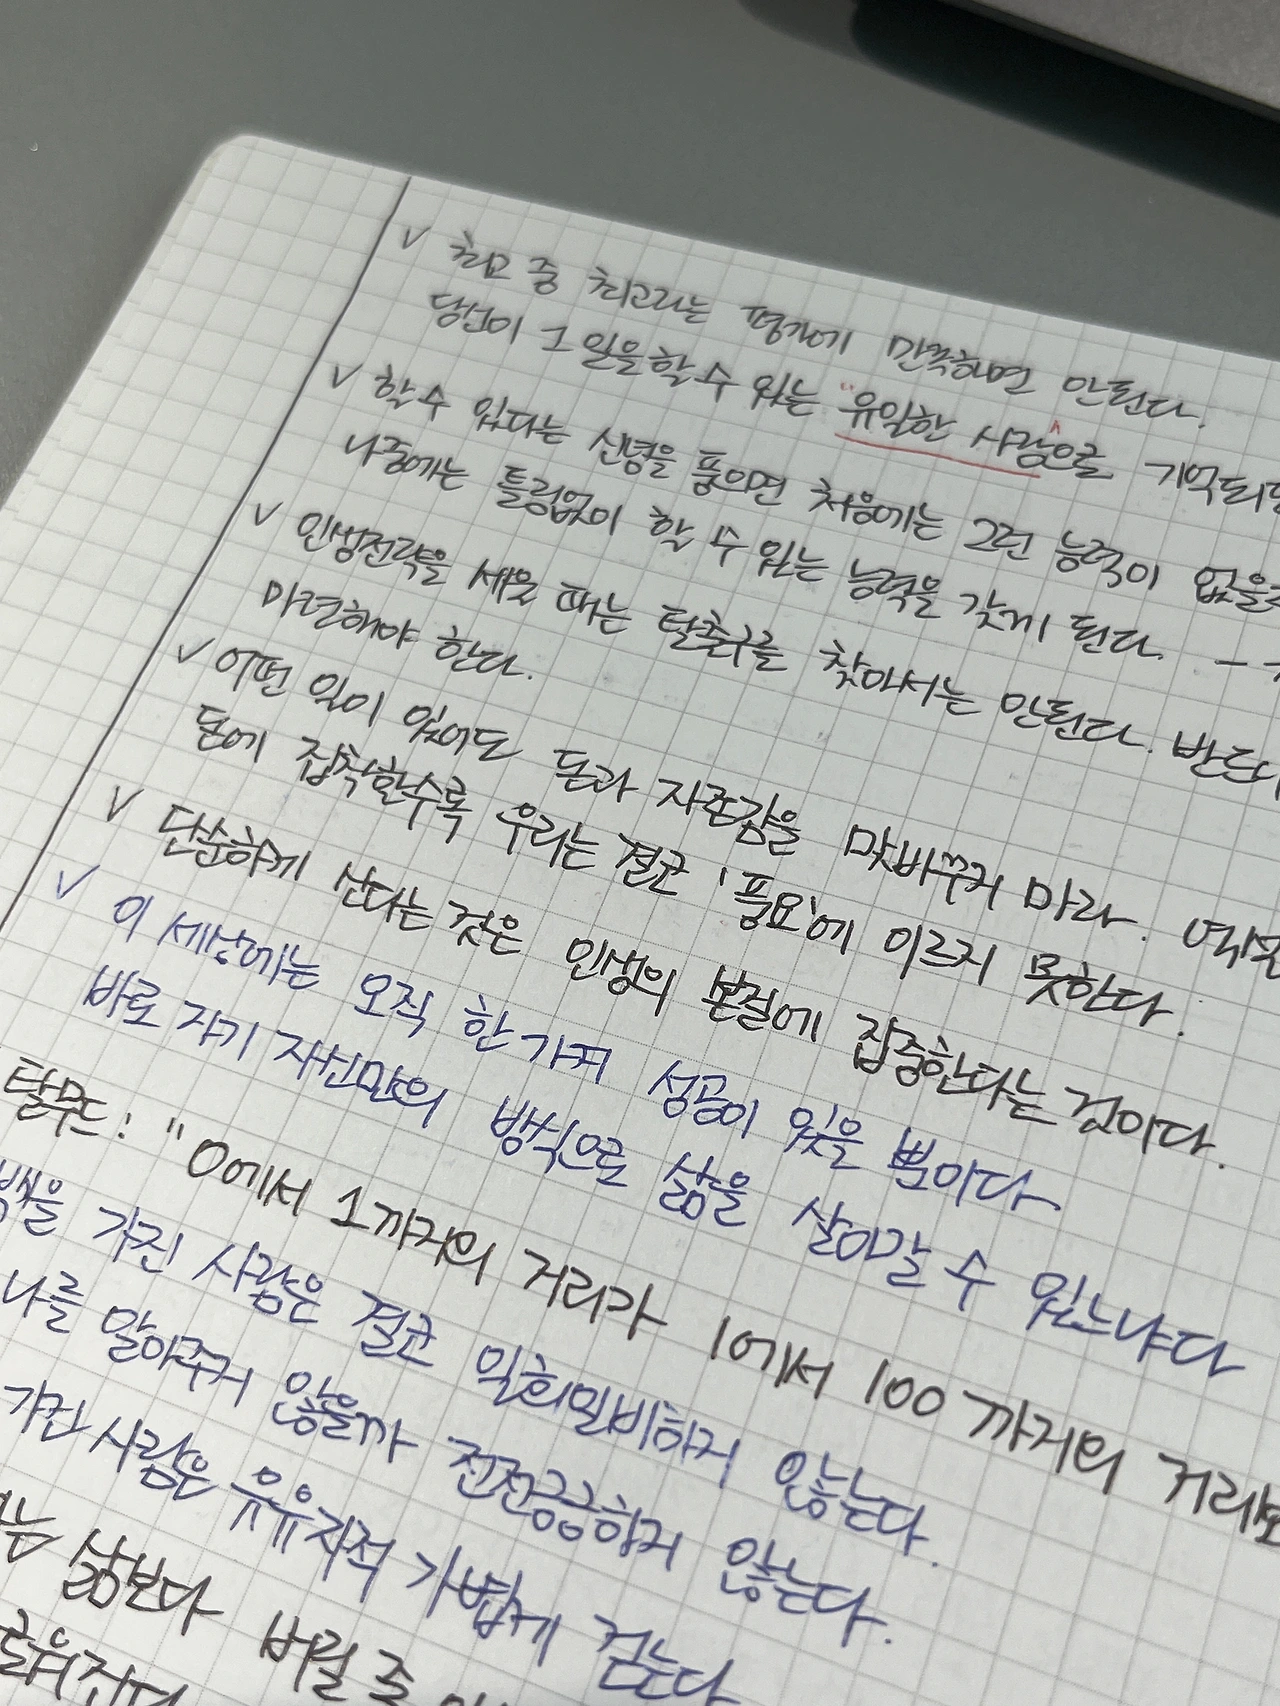 ✓ 최고 중 최고라는 평가에 만족하면 안된다.
당신이 그 일을 할 수 있는 "유일한 사람"으로 기억되
✓ 할 수 있다는 신념을 품으면 처음에는 그런 능력이 없을
나중에는 틀림없이 할 수 있는 능력을 갖게 된다. -
✓ 인생전략을 세울 때는 탈출구를 찾아서는 안된다. 반드시
마련해야 한다.
✓ 어떤 일이 있어도 돈과 자존감을 맞바꾸지 마라.
돈에 집착할수록 우리는 결코 '풍요'에 이르지 못한다.
✓ 단순하게 산다는 것은 인생의 본질에 집중한다는 것이다.
✓ 이 세상에는 오직 한 가지 성공이 있을 뿐이다
바로 자기 자신만의 방식으로 삶을 살아갈 수 있느냐다
탈무드: "0에서 1까지의 거리가 1에서 100까지의 거리보
을 가진 사람은 결코 일희일비하지 않는다.
나를 알아주지 않을까 전전긍긍하지 않는다.
가진 사람은 유유자적 가볍게 걷는다
는 삶보다 버릴 줄
로워진다